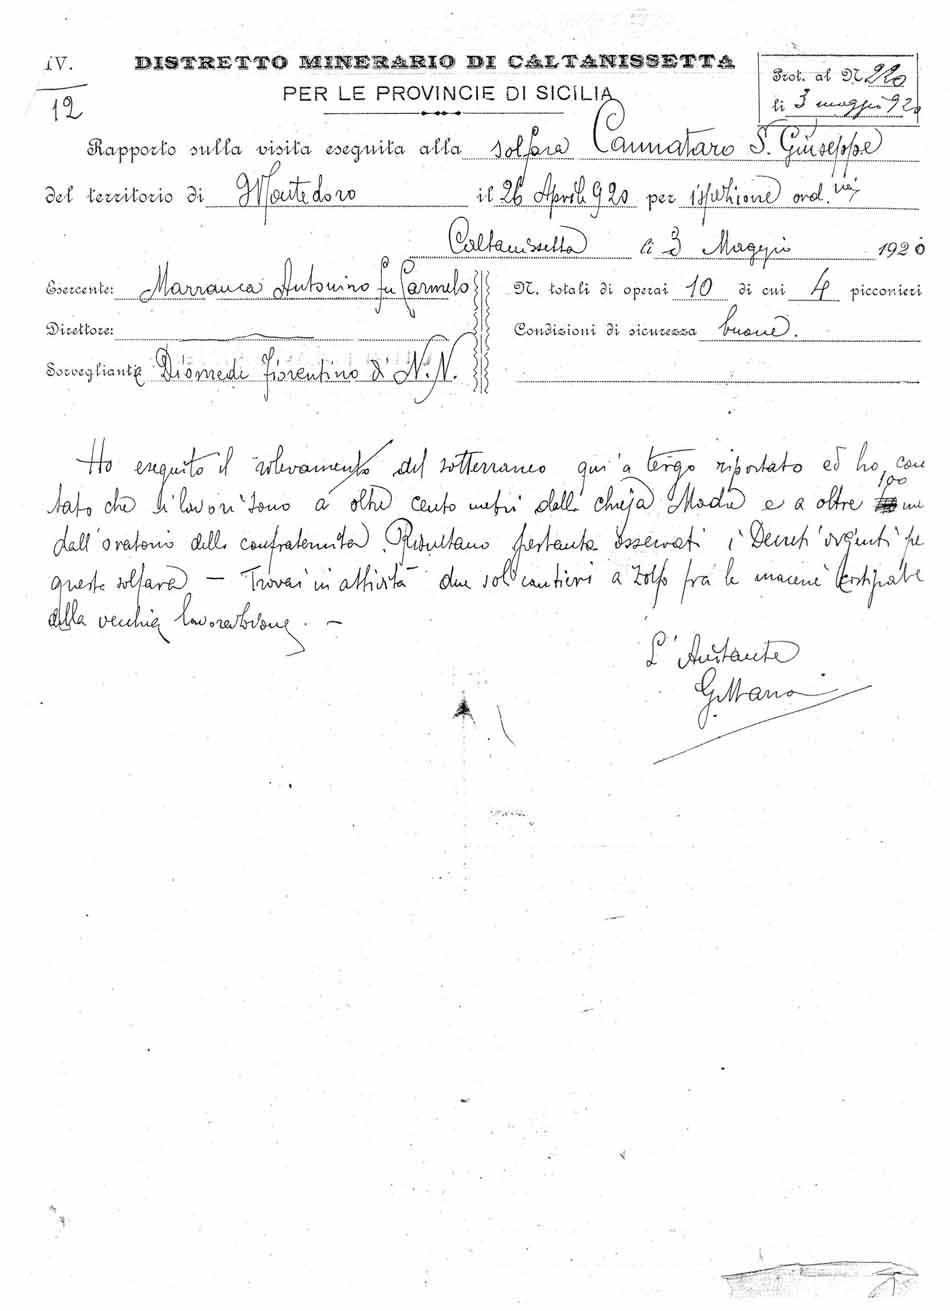 IV.
12
DISTRETTO MINERARIO DI CALTANISSETTA
PER LE PROVINCIE DI SICILIA
Prot. al N. 220
li 3 maggio 920
Rapporto sulla visita eseguita alla solfara Cannataro S. Giuseppe
del territorio di Montedoro il 26 Aprile 920 per ispezione ord.ria
Caltanissetta li 3 Maggio 1920
Esercente: Marranca Antonino fu Carmelo
N. totali di operai 10 di cui 4 picconieri
Direttore:
Condizioni di sicurezza buone.
Sorvegliante Diomede Fiorentino di N.N.
Ho eseguito il rilevamento del sotterraneo qui a tergo riportato ed ho con
tato che i lavori sono a oltre cento metri dalla chiesa Madre e a oltre 100 m
dall'oratorio della confraternita. Risultano pertanto osservati i Decreti vigenti pe
questa solfara — Trovai in attività due soli cantieri a zolfo fra le macerie
della vecchia lavorazione. —
L'Aiutante
G. Marra